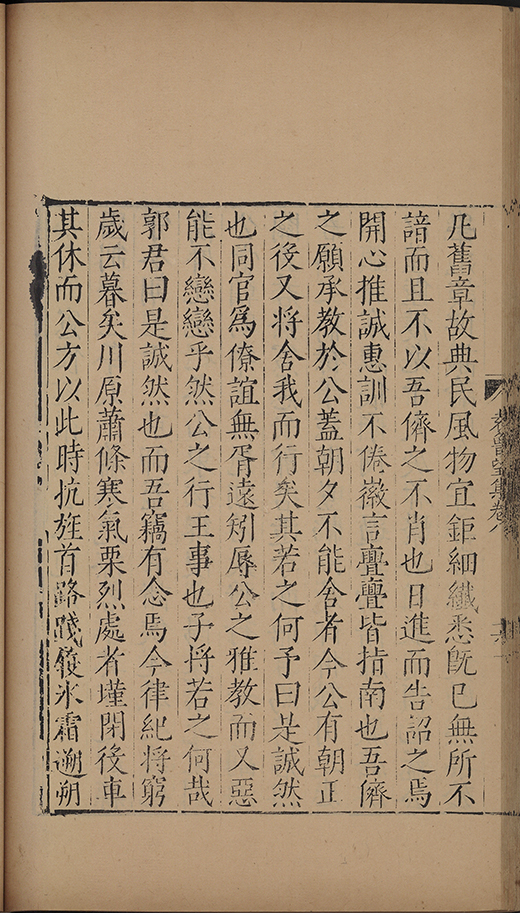 凡舊章故典民風物宜鉅細纖悉旣已無所不
諳而且不以吾儕之不肖也日進而告詔之焉
開心推誠惠訓不倦徽言亹亹皆指南也吾儕
之願承教於公蓋朝夕不能舍者今公有朝正
之後又將舍我而行矣其若之何予曰是誠然
也同官爲僚誼無胥遠矧辱公之雅教而又惡
能不戀戀乎然公之行王事也子將若之何哉
郭君曰是誠然也而吾竊有念焉今律紀將窮
歲云暮矣川原蕭條寒氣栗烈處者墐閉後車
其休而公方以此時抗旌首路踐履氷霜遡朔